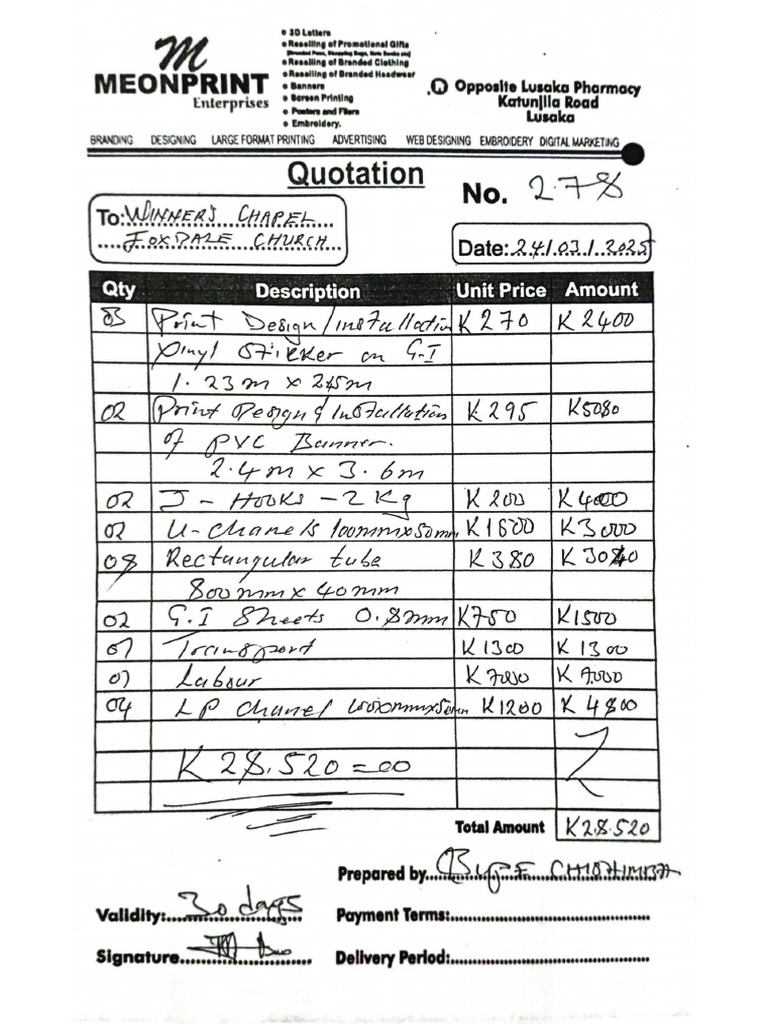 M
MEONPRINT
Enterprises
• 3D Letters
• Reselling of Promotional Gifts
(Branded Pens, Shopping Bags, Note Books etc)
• Reselling of Branded Clothing
• Reselling of Branded Headwear
• Banners
• Screen Printing
• Posters and Fliers
• Embroidery.
Opposite Lusaka Pharmacy
Katunjila Road
Lusaka
BRANDING DESIGNING LARGE FORMAT PRINTING ADVERTISING WEB DESIGNING EMBROIDERY DIGITAL MARKETING
Quotation
No. 278
To: WINNER'S CHAPEL
FOXDALE CHURCH
Date: 24/03/2025
Qty Description Unit Price Amount
03 Print Design/installation K270 K2400
Vinyl Stikker on G.I
1.23m x 245m
02 Print Design & Installation K295 K5080
of PVC Banner.
2.4m x 3.6m
02 J-Hooks-2Kg K200 K4000
02 U-chanels 100mmx50mm K1600 K3000
08 Rectangular tube K380 K3040
800mm x 40mm
02 G.I Sheets 0.8mm K750 K1500
01 Transport K1300 K1300
01 Labour K7000 K7.000
04 LP chanel 1000mmx50mm K1200 K4800
K28.520=00
Total Amount K28.520
Prepared by
Validity: 30 days Payment Terms:
Signature Delivery Period: